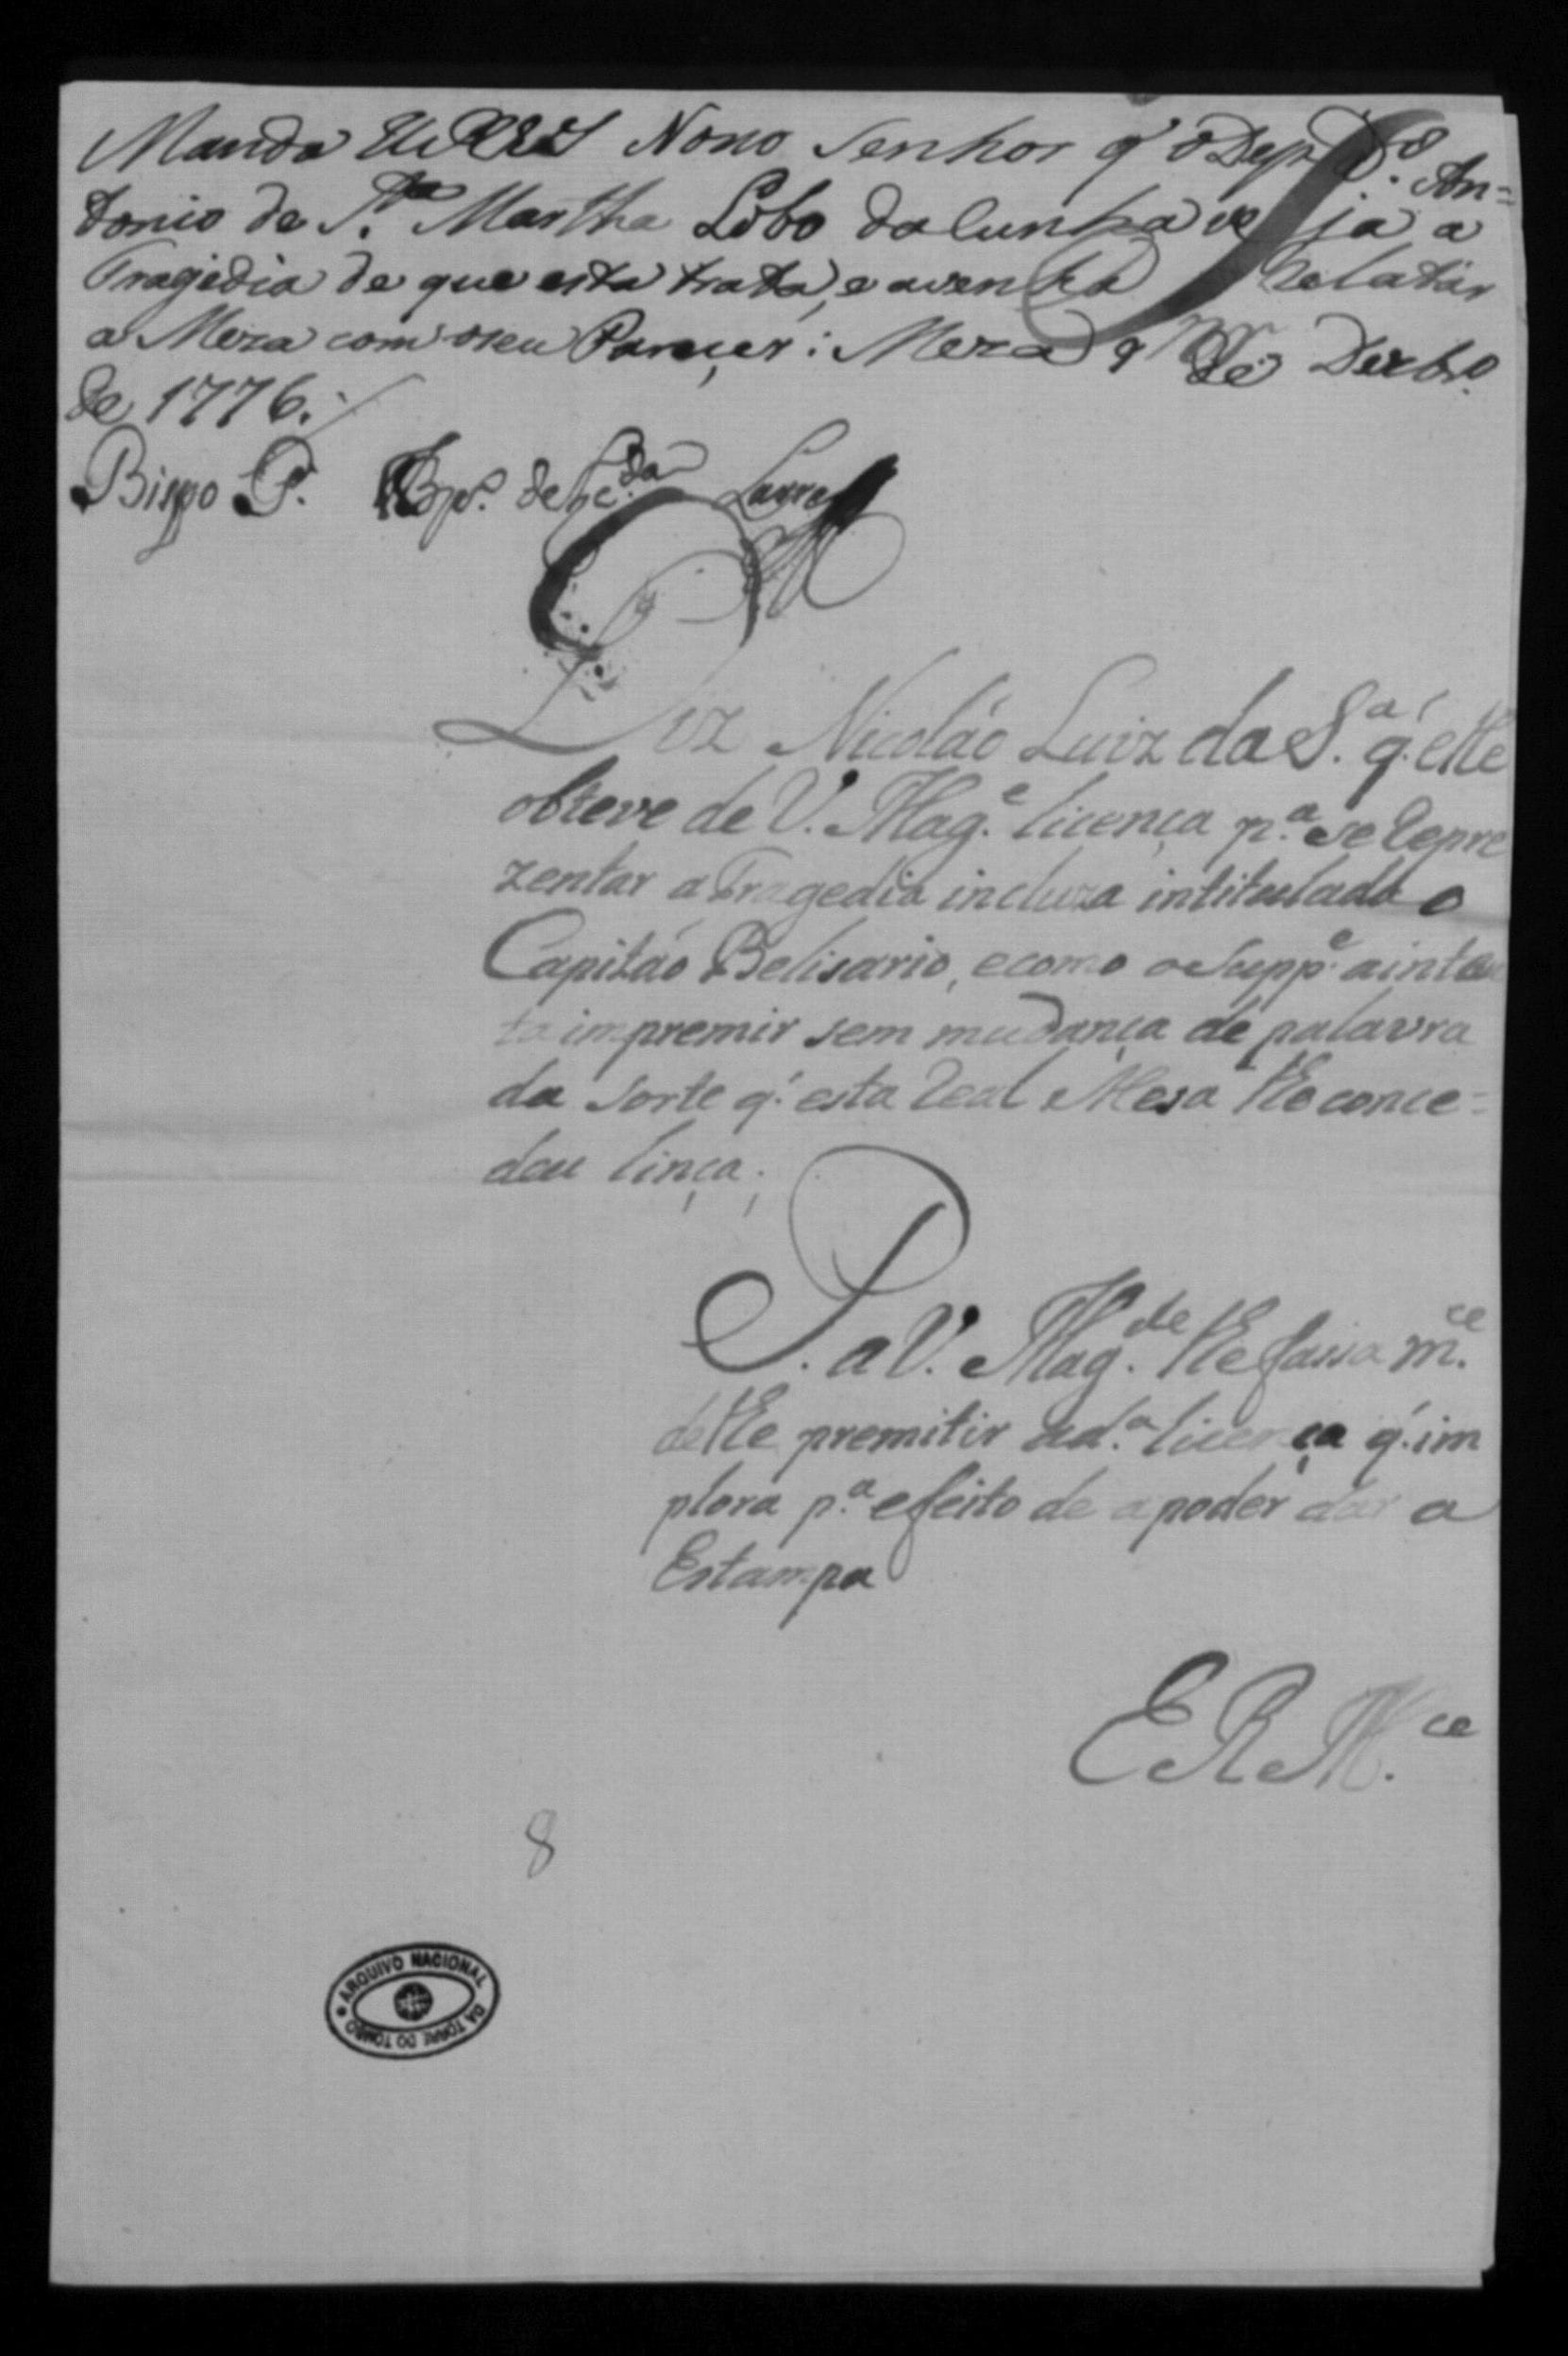 Manda El REY Noso Senhor q' o Dep.do An=
tonio de S.ta Martha Lobo da Cunha veja a
Tragedia de que esta trata, e a venha Relatar
a Meza com o seu Pareçer: Meza 9 de Dezbr.o
de 1776.
Bispo P.
Diz Nicoláo Luiz da S.a q' elle
obteve de V. Mag.e licença p.a se Repre
zentar a Tragedia incluza intitulada o
Capitáo Belisario, e como o Supp.e a inten
ta impremir sem mudança de palavra
da sorte q' esta Real Mesa lhe conce=
deu linça;
P. a V. Mag.de lhe fassa m.ce
de lhe premitir a d.a licença q' im
plora p.a efeito de a poder dar a
Estampa
E R M.ce
8
ARQUIVO NACIONAL DA TORRE DO TOMBO